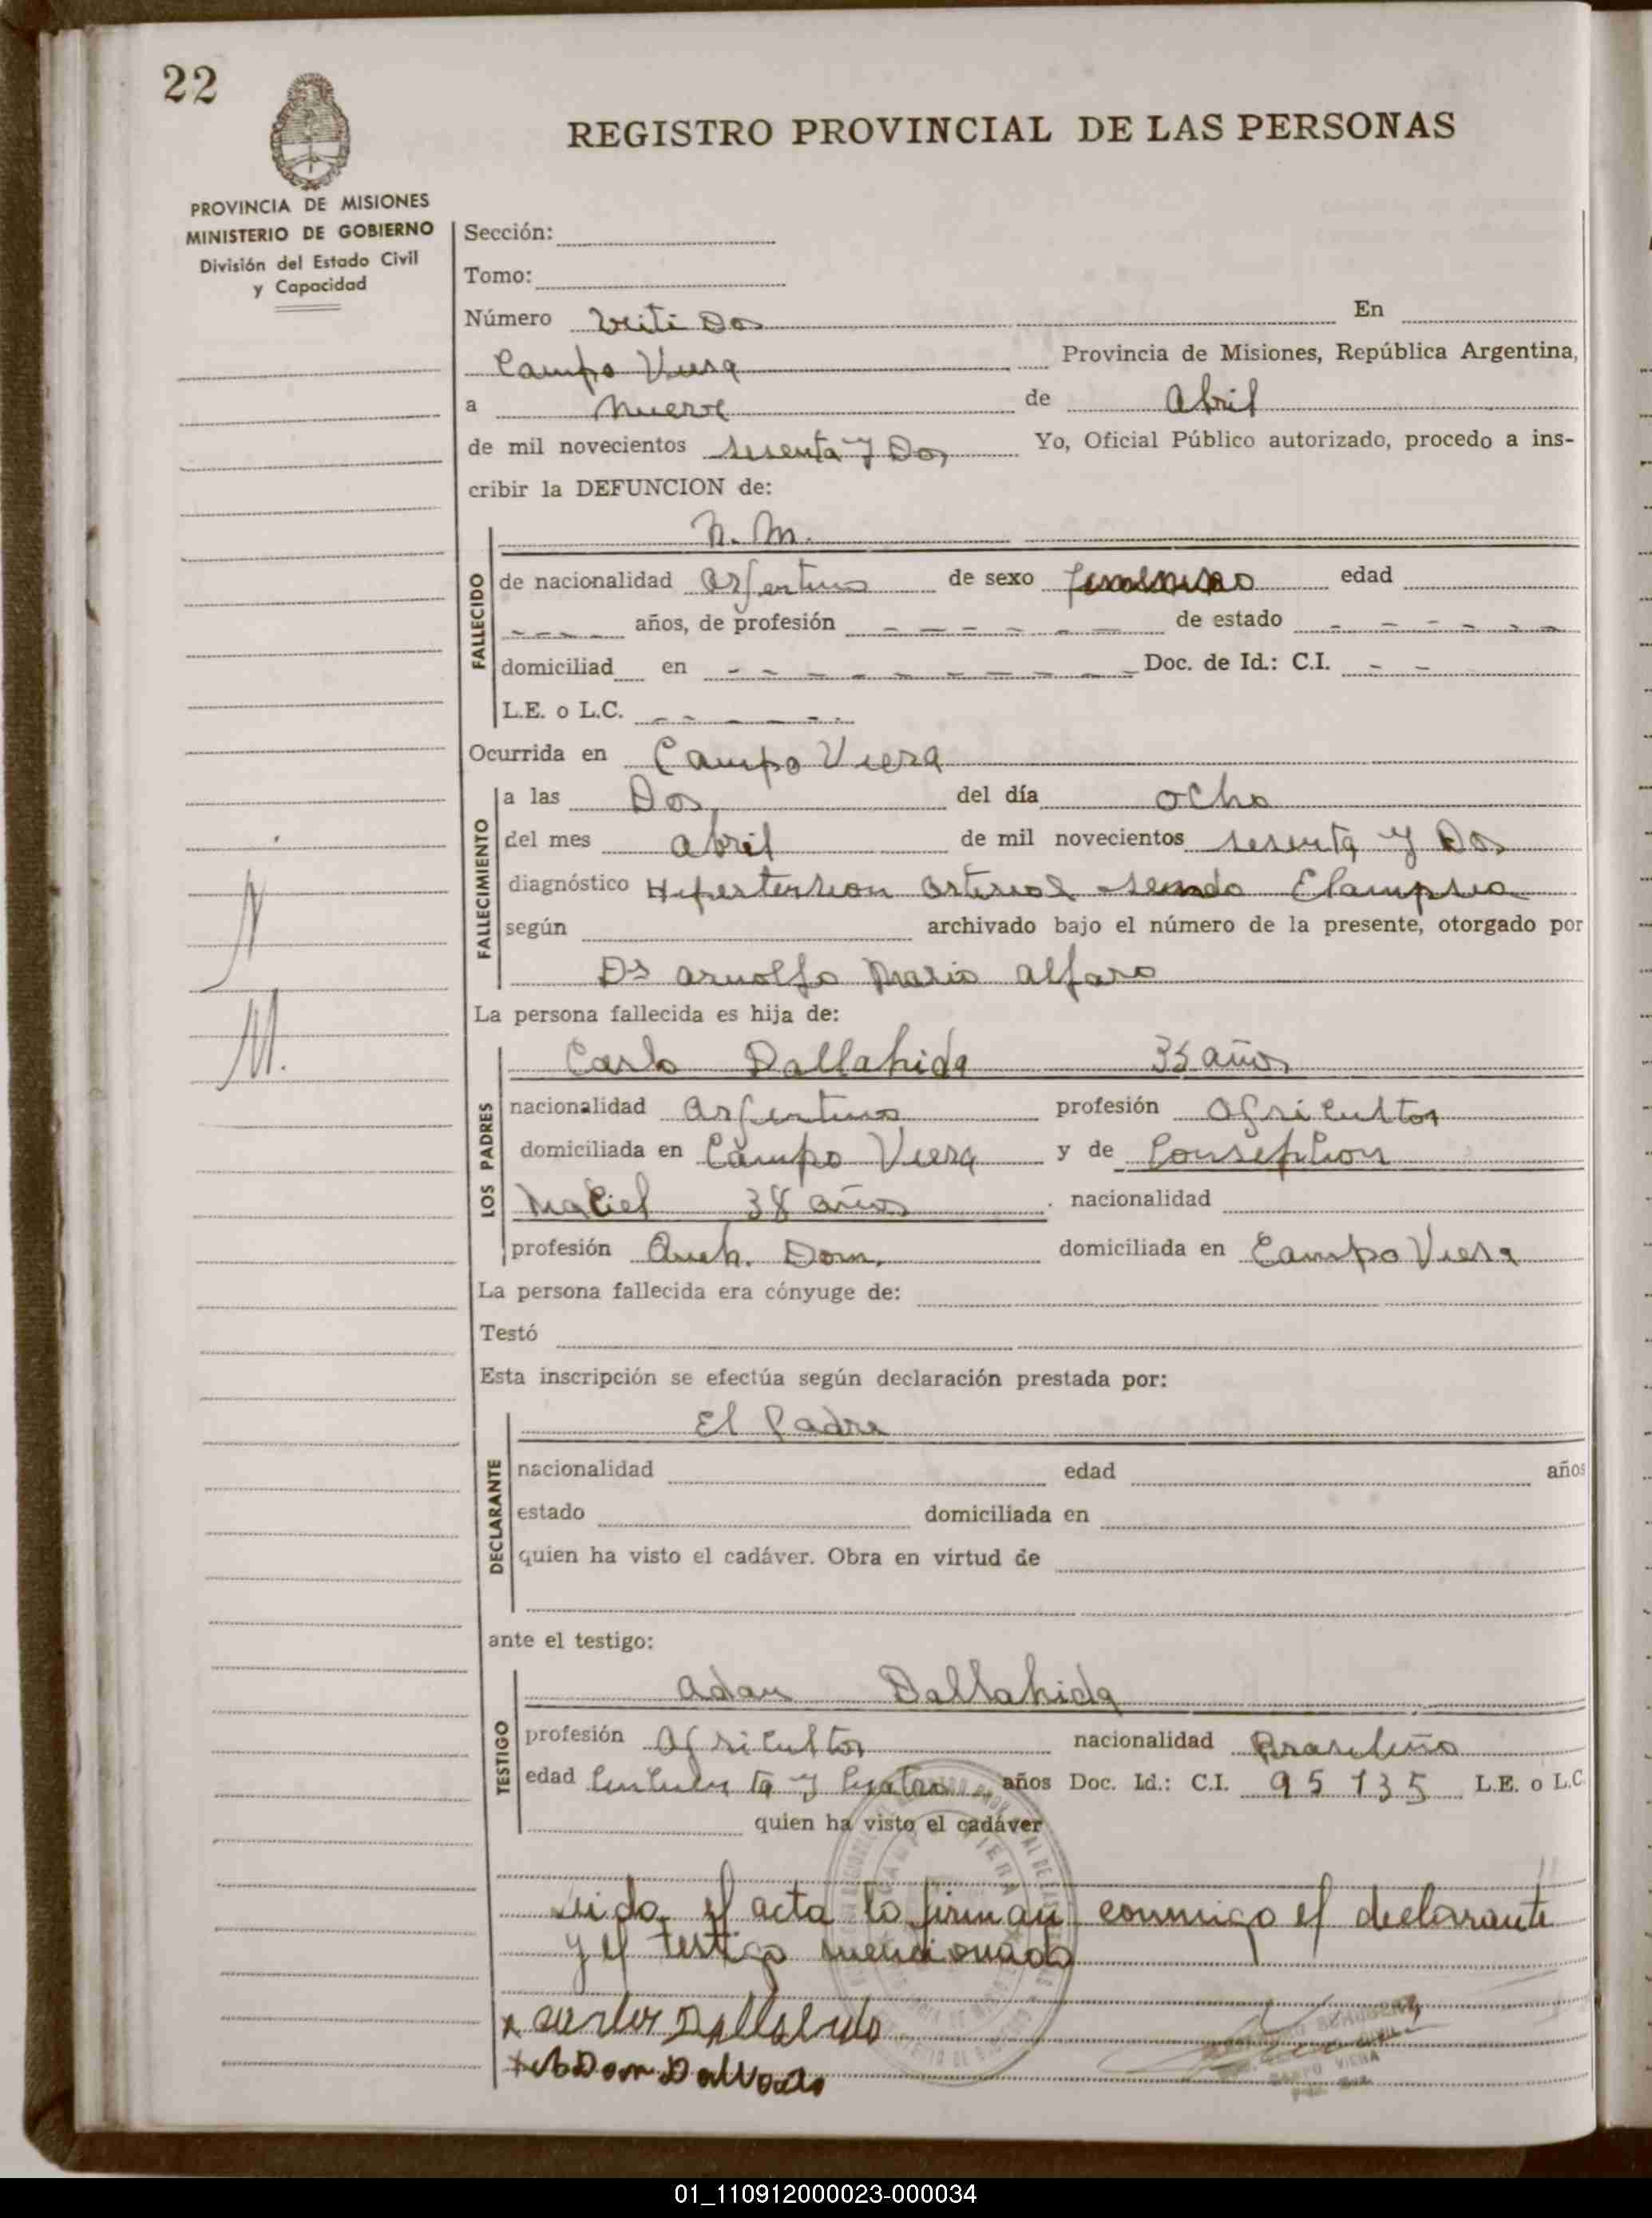 22
REGISTRO PROVINCIAL DE LAS PERSONAS
PROVINCIA DE MISIONES
MINISTERIO DE GOBIERNO
División del Estado Civil
y Capacidad
Sección:
Tomo:
Número Veiti Dos En
Campo Viera Provincia de Misiones, República Argentina,
a nueve de Abril
de mil novecientos sesenta y Dos Yo, Oficial Público autorizado, procedo a ins-
cribir la DEFUNCION de:
N. M.
FALLECIDO
de nacionalidad argentino de sexo femenino edad
--- años, de profesión ------ de estado ------
domiciliad en --------- Doc. de Id.: C.I. --
L.E. o L.C. -----
Ocurrida en Campo Viera
FALLECIMIENTO
a las Dos, del día ocho
del mes abril de mil novecientos sesenta y Dos
diagnóstico Hipertension arterial Elampsia
según archivado bajo el número de la presente, otorgado por
Dr Arnolfo Mario Alfaro
N
M.
La persona fallecida es hija de:
LOS PADRES
Carlo Dallahida 35 años
nacionalidad argentino profesión agricultor
domiciliada en Campo Viera y de Consepcion
Maciel 38 años . nacionalidad
profesión Queh. Dom. domiciliada en Campo Viera
La persona fallecida era cónyuge de:
Testó
Esta inscripción se efectúa según declaración prestada por:
DECLARANTE
El Padre
nacionalidad edad años
estado domiciliada en
quien ha visto el cadáver. Obra en virtud de
ante el testigo:
TESTIGO
Adan Dallahida
profesión agricultor nacionalidad Brasileño
edad y años Doc. Id.: C.I. 95135 L.E. o L.C
quien ha visto el cadáver
Leida el acta lo firman conmigo el declarante
y el testigo mencionado
CAMPO VIERA
01_110912000023-000034